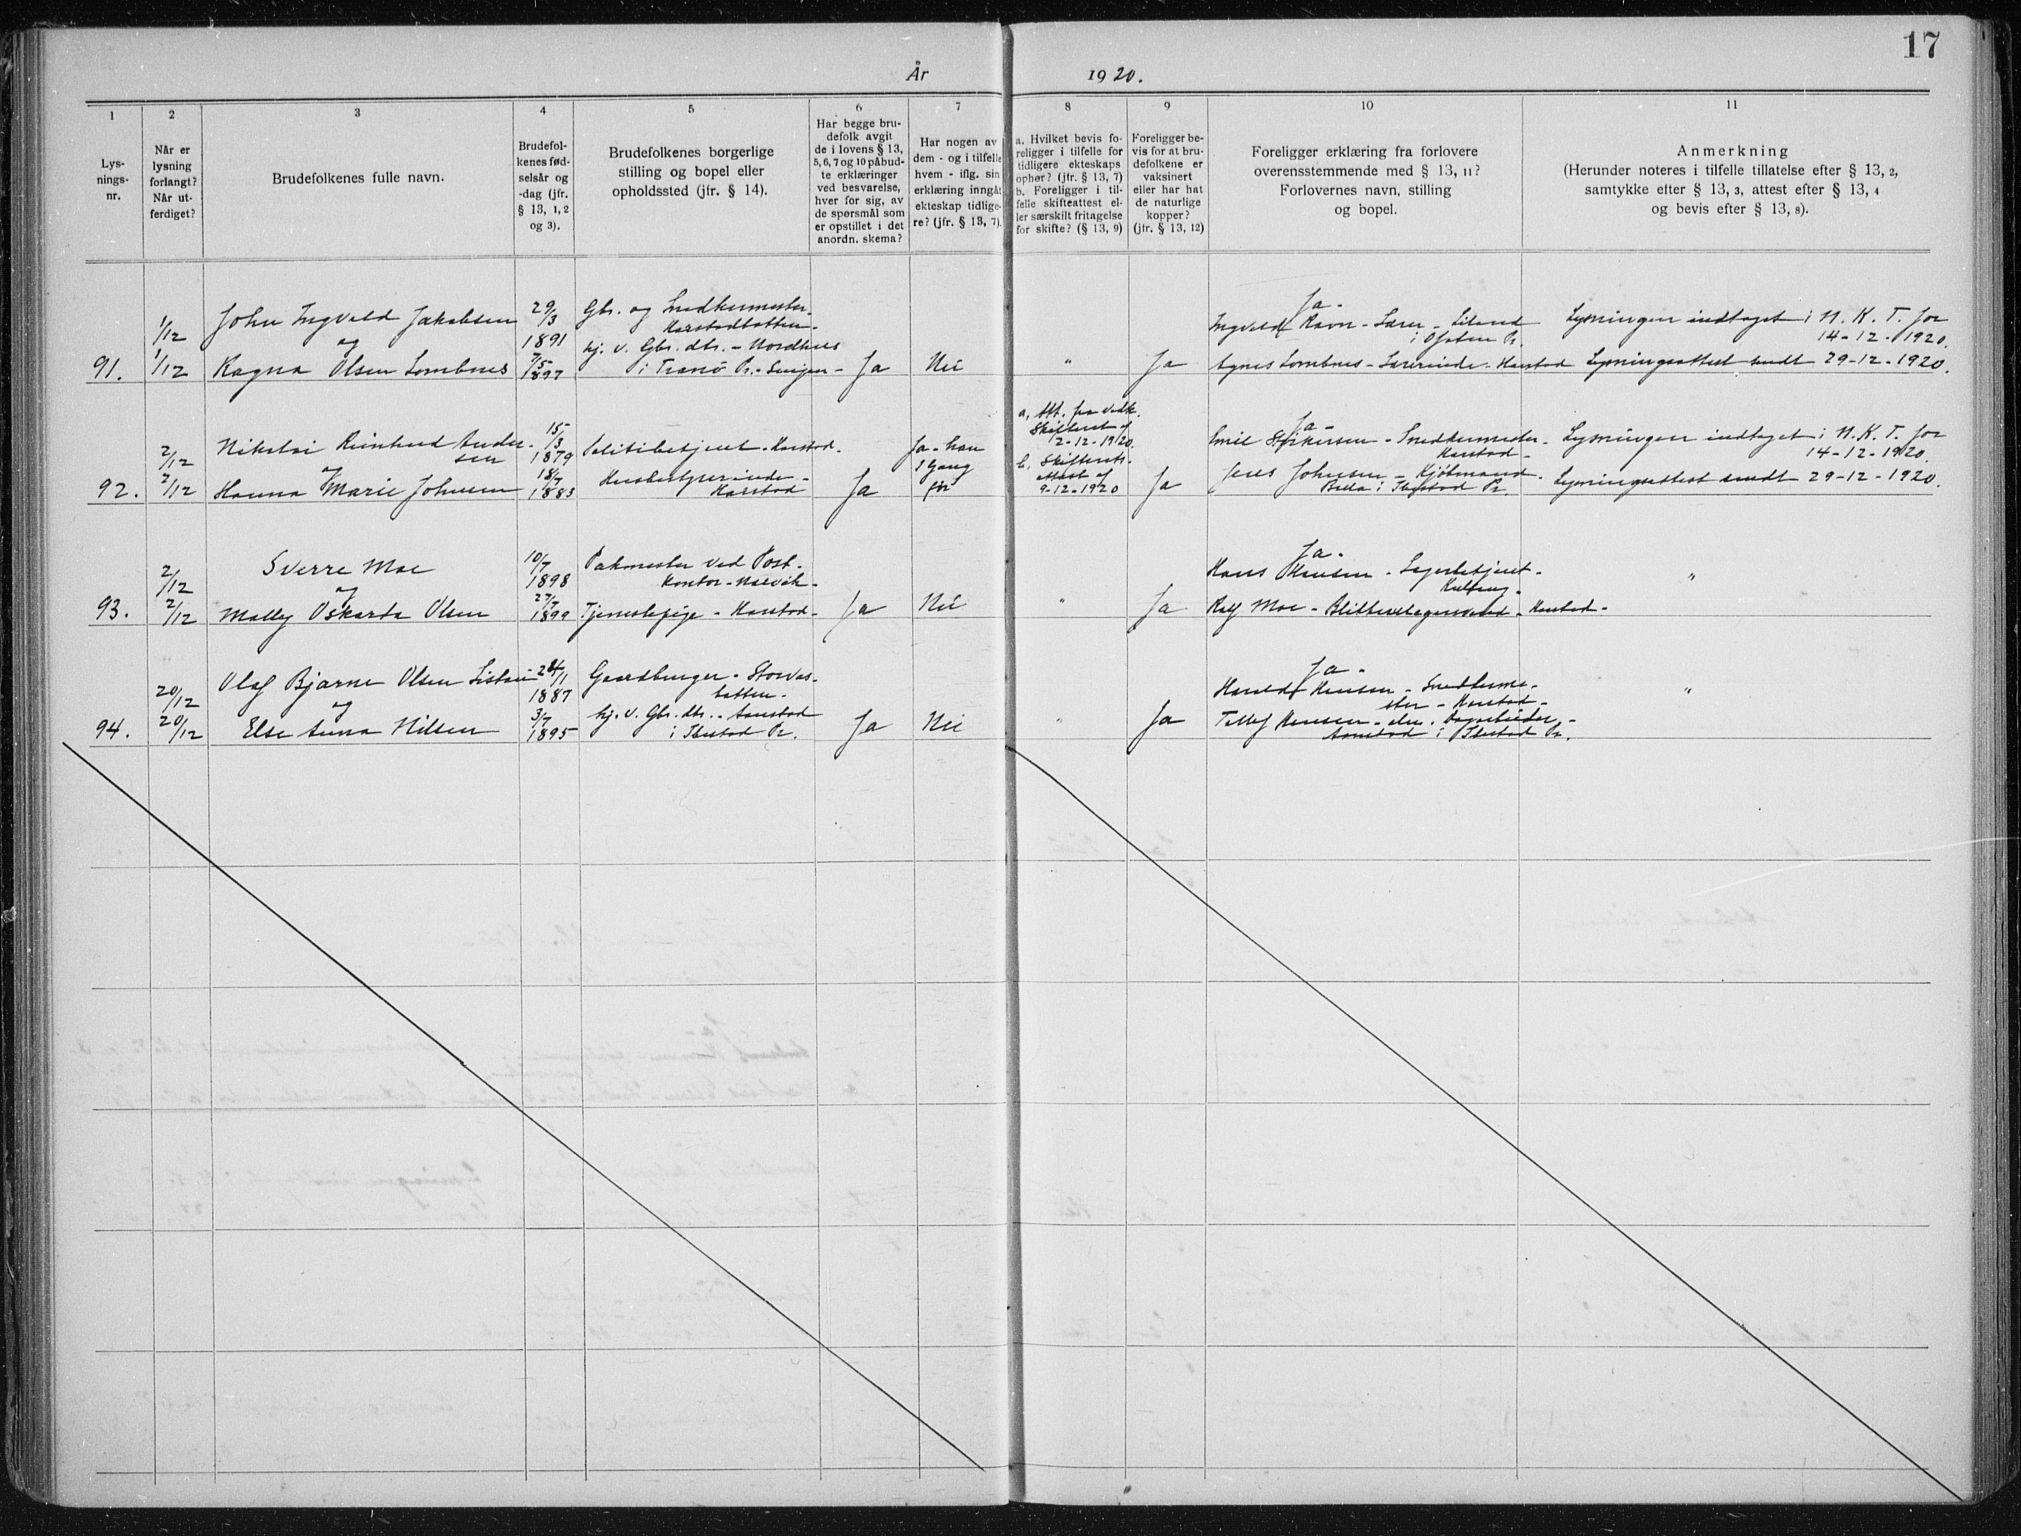 17
År 1920.
1 2 3 4 5 6 7 8 9 10 11
Lys-
nings-
nr.
Når er
lysning
forlangt?
Når ut-
ferdiget?
Brudefolkenes fulle navn.
Brudefol-
kenes fød-
selsår og
-dag (jfr.
§ 13, 1, 2
og 3).
Brudefolkenes borgerlige
stilling og bopel eller
opholdssted (jfr. § 14).
Har begge bru-
defolk avgit
de i lovens § 13,
5, 6, 7 og 10 påbud-
te erklæringer
ved besvarelse,
hver for sig, av
de spørsmål som
er opstillet i det
anordn. skema?
Har nogen av
dem - og i tilfelle
hvem - iflg. sin
erklæring inngåt
ekteskap tidlige-
re? (jfr. § 13, 7).
a. Hvilket bevis fo-
religger i tilfelle for
tidligere ekteskaps
ophør? (jfr. § 13, 7)
b. Foreligger i til-
felle skifteattest el-
ler særskilt fritagelse
for skifte? (§ 13, 9)
Foreligger be-
vis for at bru-
defolkene er
vaksinert
eller har hat
de naturlige
kopper?
(jfr. § 13, 12)
Foreligger erklæring fra forlovere
overensstemmende med § 13, 11?
Forlovernes navn, stilling
og bopel.
Anmerkning
(Herunder noteres i tilfelle tillatelse efter § 13, 2,
samtykke efter § 13, 3, attest efter § 13, 4
og bevis efter § 13, 8).
91.
1/12
1/12
John Ingvald Jakobsen
og
Ragna Olsen Lombnes
29/3
1891
7/5
1897
Gbr. og Snedkermester
Harstadbotten-
hj. v. Gbr. dtr. - Nordhus
i Tranø Pr. - Senjen -
Ja
Nei
"
Ja
Ja -
Ingvald Ravn - Lærer - Liland
i Ofoten Pr.
Agnes Lombnes - Lærerinde - Harstad
Lysningen indtaget i N. K. T. for
14-12-1920.
Lysningsattest sendt 29-12-1920.
92.
2/12
2/12
Nikolai Reinhard Ander-
sen
og
Hanna Marie Johnsen
15/3
1879
18/7
1883
Politibetjent - Harstad.
Husbestyrerinde -
Harstad
Ja
Ja - han
1 Gang
før
a, Att. fra vedk.
Skifteret af
2-12-1920
b, Skifterets
attest af
9-12-1920
Ja
Ja -
Emil Størkersen - Snedkermester -
Harstad -
Jens Johnsen - Kjøbmand
i Ibestad Pr
Lysningen indtaget i N. K. T. for
14-12-1920.
Lysningsattest sendt 29-12-1920.
93.
2/12
2/12
Sverre Moe
og
Mally Oskarda Olsen
10/7
1898
27/7
1899
Pakmester ved Post-
kontor - Narvik -
Tjenestepige - Harstad -
Ja
Nei
"
Ja
Ja -
Hans Hansen - Lagerbetjent -
Ralf Moe - - Harstad -
"
94.
20/12
20/12
Olaf Bjarne Olsen
og
Else Anna Nilsen
1887
3/7
1895
Gaardbruger - Storvas-
botten -
hj. v. Gbr. dtr. - Aanstad
i Ibestad Pr.
Ja
Nei
"
Ja
Ja -
Harald Hansen - Snedkerme-
ster - Harstad -
Tellef Hansen - -
Aanstad i Ibestad Pr.
"